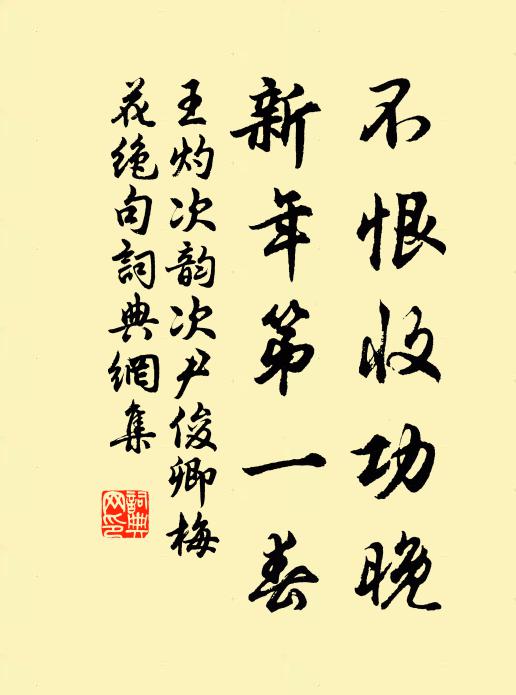 不恨收功晚
新年第一春
王灼次韵次尹俊卿梅
花绝句詞典網集
詞典
网印